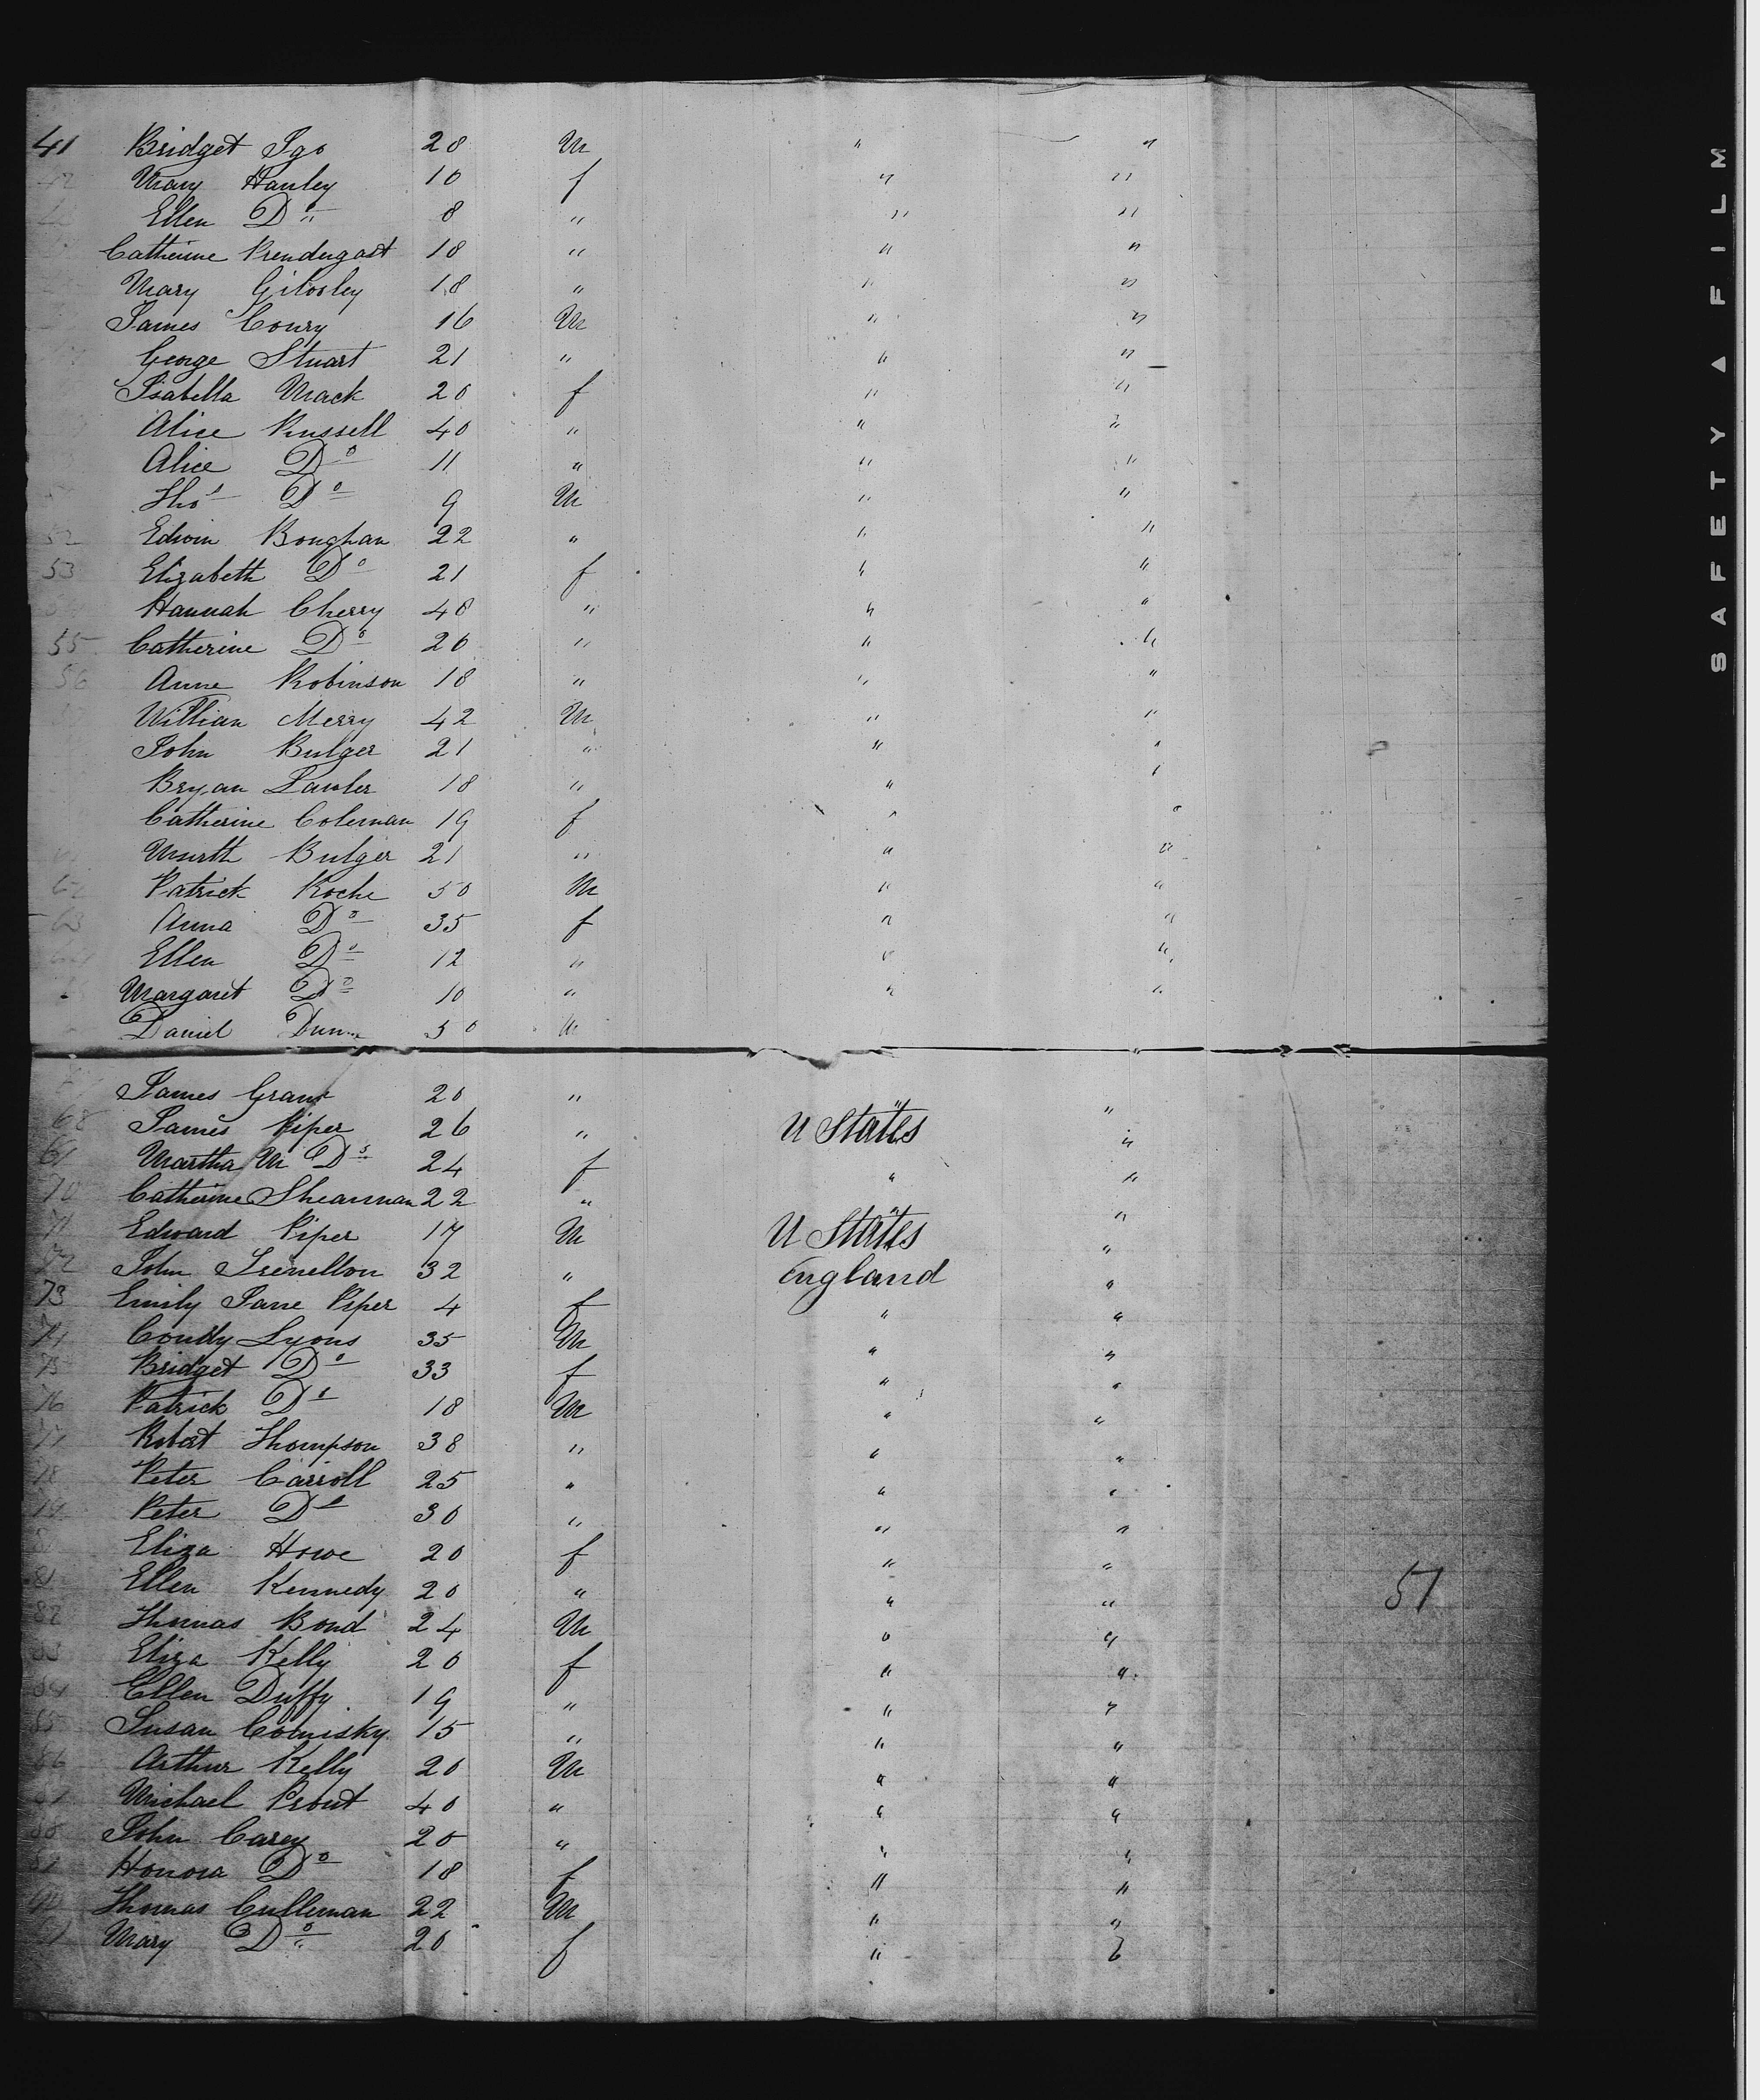 41 Bridget Igo 28 M " "
42 Mary Hanley 10 f " "
Ellen Do 8 " " "
Catherine Prendergast 18 " " "
Mary 18 " " "
James Conry 16 M " "
George Stuart 21 " " "
Isabella Mack 20 f " "
Alice Russell 40 " " "
Alice Do 11 " " "
Thos Do 9 M " "
52 Edwin Boughan 22 " " "
53 Elizabeth Do 21 f " "
Hannah Cherry 40 " " "
55 Catherine Do 20 " " "
56 Anne Robinson 18 " " "
William Merry 42 M " "
John Bulger 21 " " "
Bryan Lawler 18 " " "
Catherine Coleman 19 f " "
Murth Bulger 21 " " "
62 Patrick Roche 50 M " "
63 Anna Do 35 f " "
64 Ellen Do 12 " " "
Margaret Do 10 " " "
Daniel Dunn 50 M
James Grant 20 " " "
68 James Piper 26 " U States "
69 Martha M Do 24 f " "
70 Catherine Shearman 22 " " "
71 Edward Piper 17 M U States "
72 John Trenellon 32 " England "
73 Emily Jane Piper 4 f " "
74 Condy Lyons 35 M " "
75 Bridget Do 33 f " "
76 Patrick Do 18 M " "
77 Robert Thompson 38 " " "
78 Peter Carroll 25 " " "
79 Peter Do 30 " " "
80 Eliza Howe 20 f " "
81 Ellen Kennedy 20 " " "
57
82 Thomas Bond 24 M " "
83 Eliza Kelly 20 f " "
84 Ellen Duffy 19 " " "
85 Susan Comisky 15 " " "
86 Arthur Kelly 20 M " "
87 Michael Prout 40 " " "
88 John Carey 20 " " "
89 Honora Do 18 f " "
90 Thomas Culleman 22 M " "
91 Mary Do 20 f " "
SAFETY ▲ FILM